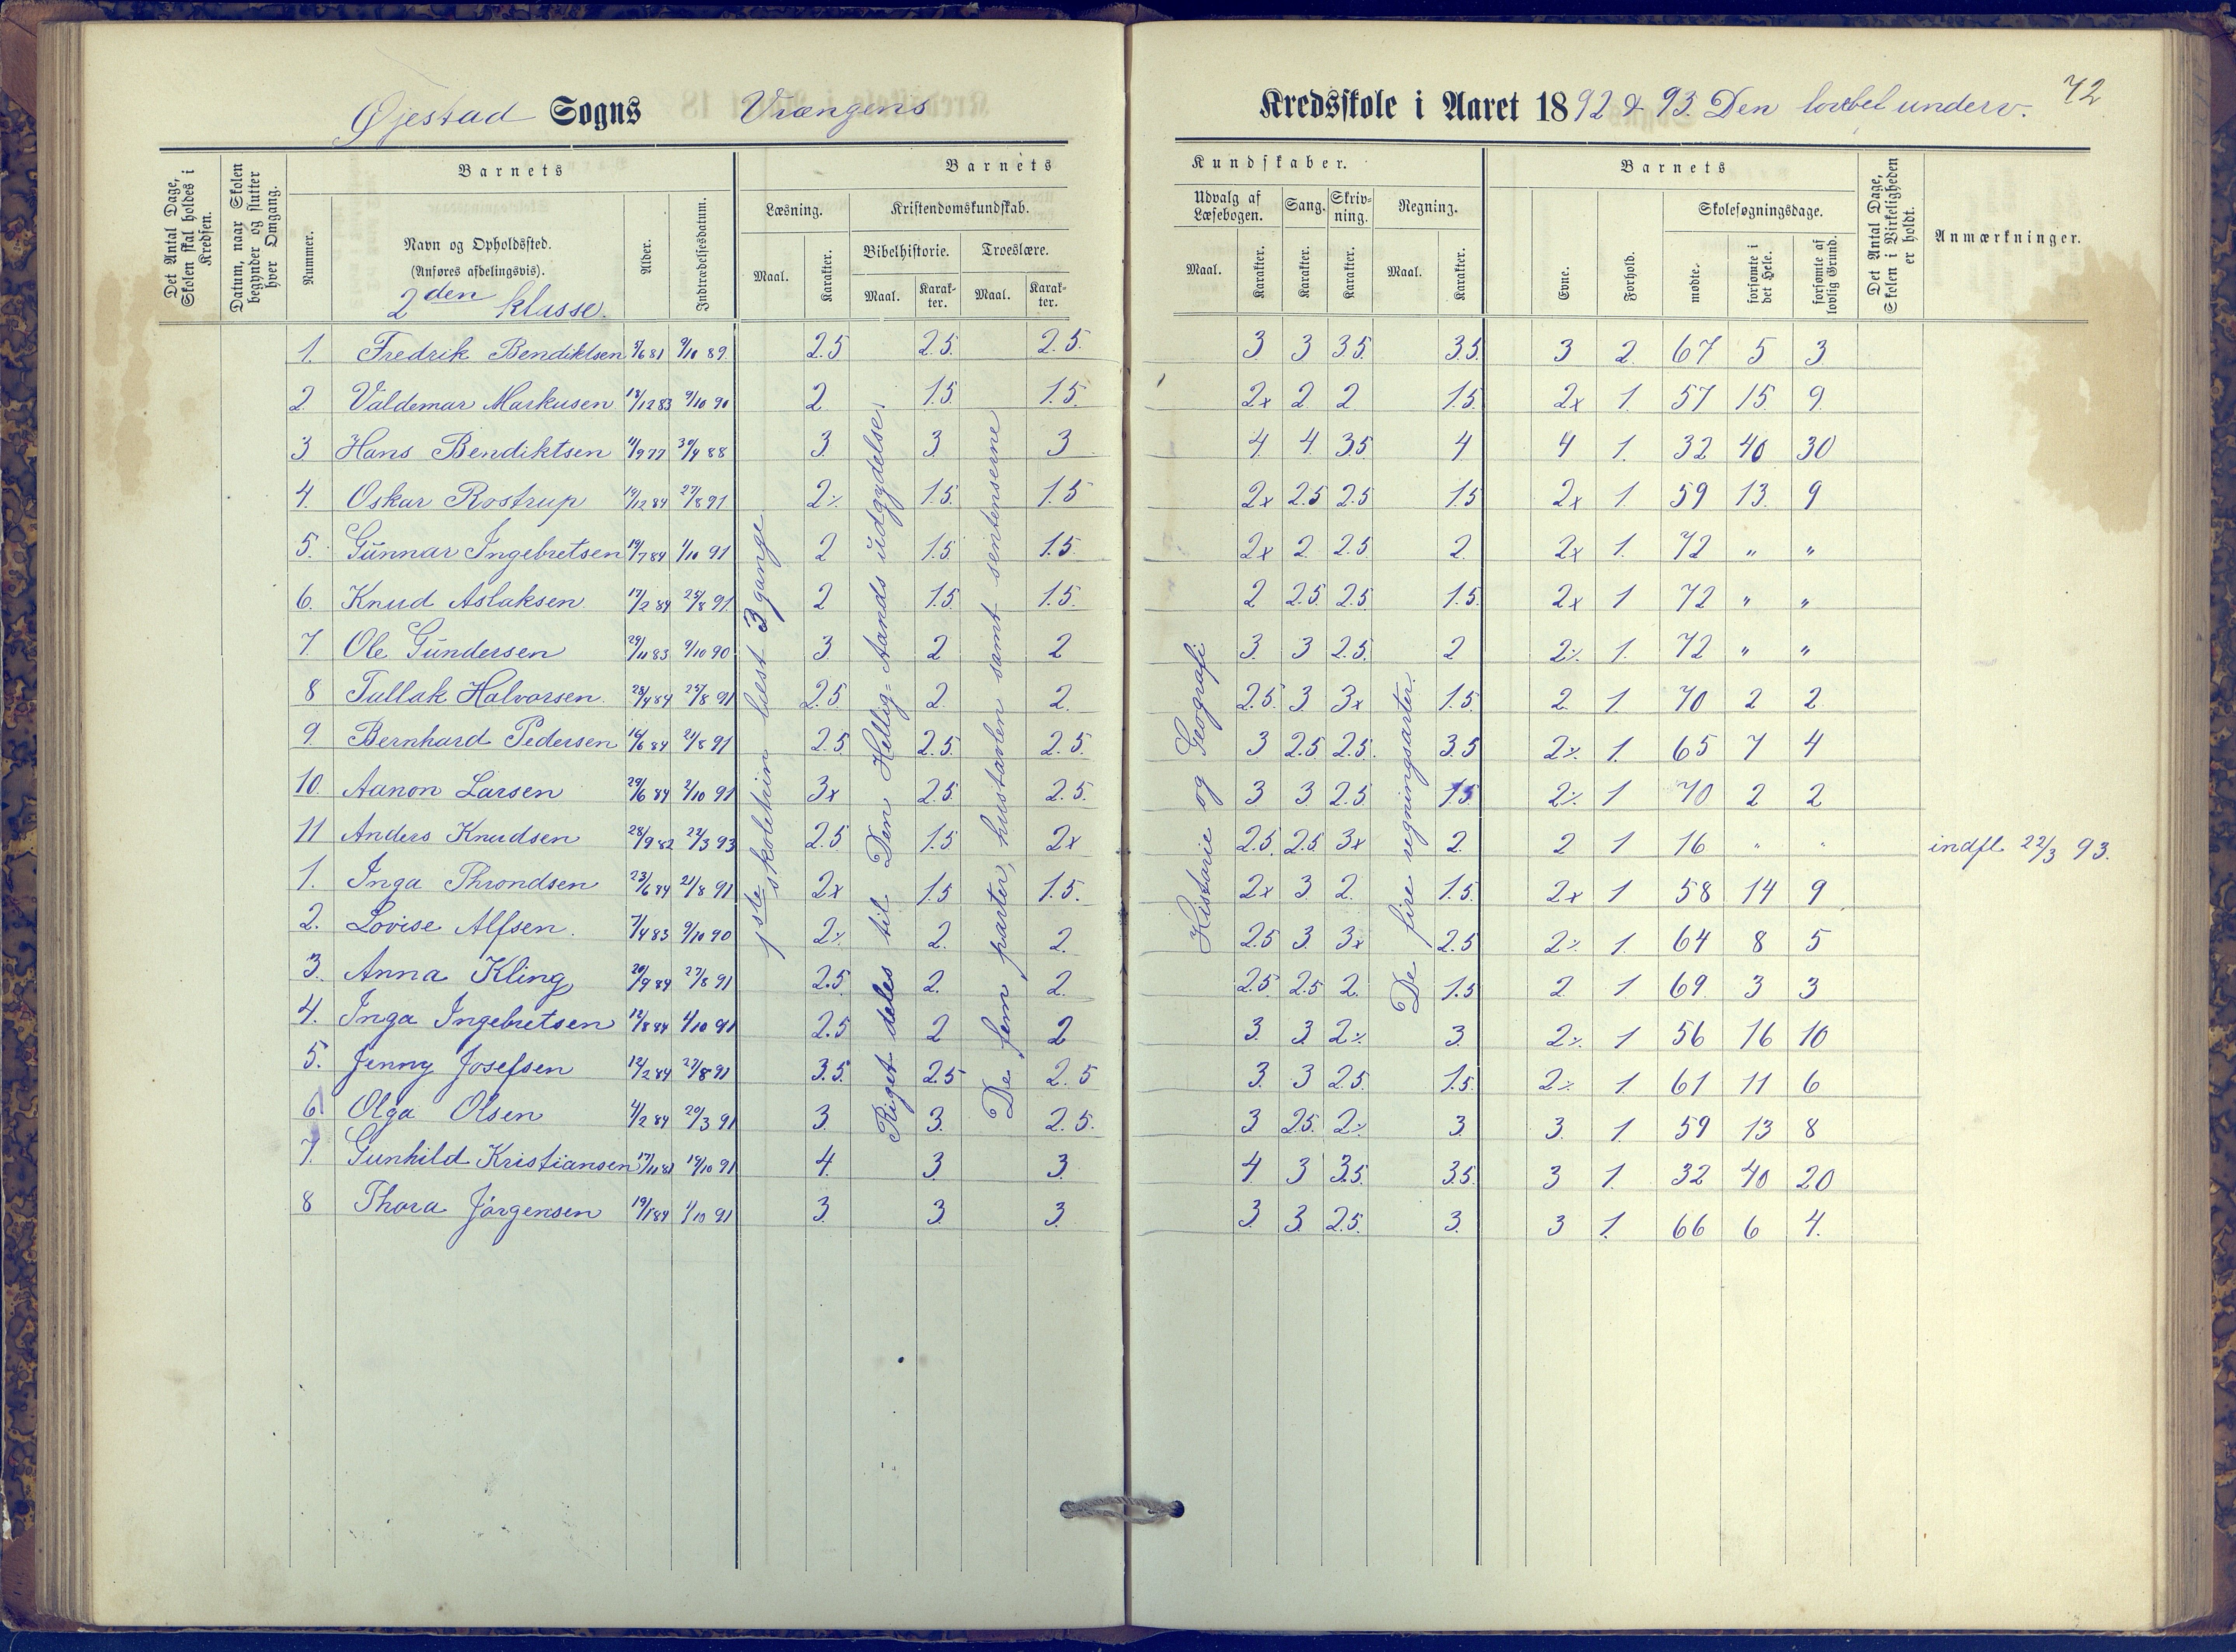 Øjestad Sogns Vrængens
Kredsskole i Aaret 1892 & 93. Den lovbef underv. 72
Det Antal Dage, Skolen skal holdes i Kredsen.
Datum, naar Skolen begynder og slutter hver Omgang.
Barnets
Nummer.
Navn og Opholdssted.
(Anføres afdelingsvis).
2den klasse.
Alder.
Indtrædelsesdatum.
Barnets
Læsning.
Maal.
Karakter.
Kristendomskundskab.
Bibelhistorie.
Maal.
Karakter.
Troeslære.
Maal.
Karakter.
Kundskaber.
Udvalg af Læsebogen.
Maal.
Karakter.
Sang.
Karakter.
Skrivning.
Karakter.
Regning.
Maal.
Karakter.
Barnets
Evne.
Forhold.
Skolesøgningsdage.
mødte.
forsømte i det Hele.
forsømte af lovlig Grund.
Det Antal Dage, Skolen i Virkeligheden er holdt.
Anmærkninger.
1ste skoletrin læst 3 gange
Riget deles til Den Hellig-Aands udgydelse.
De fem parter, hustavlen samt sentenserne
Historie og Geografi
De fire regningsarter.
1. Fredrik Bendiktsen 8/6 81 9/10 89. 2.5 2.5. 2.5. 3 3 3.5. 3.5. 3 2. 67 5 3
2 Valdemar Markusen 18/12 83 9/10 90 2 1.5 1.5. 2x 2 2 1.5. 2x 1. 57 15. 9.
3 Hans Bendiktsen 11/9 77 30/4 88 3. 3 3 4 4. 3.5 4 4 1. 32 40 30
4. Oskar Rostrup 19/12 84 27/8 91 2% 1.5. 1.5 2x 2.5 2.5 1.5 2x 1. 59 13. 9
5. Gunnar Ingebretsen 19/7 84 1/10 91 2 1.5 1.5. 2x 2 2.5 2. 2x 1. 72 " "
6. Knud Aslaksen. 17/2 84 25/8 91. 2 1.5. 1.5. 2 2.5. 2.5. 1.5. 2x 1 72 " "
7 Ole Gundersen 29/11 83 9/10 90 3. 2 2 3. 3 2.5. 2 2% 1. 72 " "
8 Tallak Halvorsen. 28/4 84 25/8 91 2.5. 2 2. 2.5. 3 3x 1.5. 2. 1. 70 2 2
9. Bernhard Pedersen 16/6 84 21/8 91 2.5 2.5. 2.5. 3 2.5 2.5. 3.5 2% 1. 65 7 4
10. Aanon Larsen 29/6 84 2/10 91 3x 2.5. 2.5. 3 3 2.5 1.5 2% 1 70 2 2
11 Anders Knudsen 28/9 82 22/3 93 2.5 1.5 2x 2.5. 2.5 3x 2. 2 1 16 " " indfl. 22/3 93.
1. Inga Throndsen 23/6 84 21/8 91 2x 1.5 1.5. 2x 3 2. 1.5. 2x 1 58 14 9
2. Lovise Alfsen. 7/4 83 9/10 90 2% 2. 2 2.5 3. 3x 2.5 2% 1. 64 8 5
3. Anna Kling 20/9 84 27/8 91 2.5 2. 2. 2.5. 2.5 2. 1.5 2. 1. 69. 3 3
4. Inga Ingebretsen 12/8 84 1/10 91 2.5 2 2 3 3 2% 3. 2% 1 56 16 10
5. Jenny Josefsen 12/2 84 27/8 91 3.5. 2.5 2.5 3. 3 2.5. 1.5. 2% 1. 61 11 6
6 Olga Olsen 4/2 84 20/3 91 3. 3. 2.5. 3 2.5. 2% 3 3. 1 59 13 8
7. Gunhild Kristiansen 17/11 81 19/10 91 4. 3 3. 4 3 3.5. 3.5. 3 1. 32 40 20
8 Thora Jörgensen 19/1 84 1/10 91 3. 3. 3. 3 3. 2.5. 3. 3 1. 66 6 4.